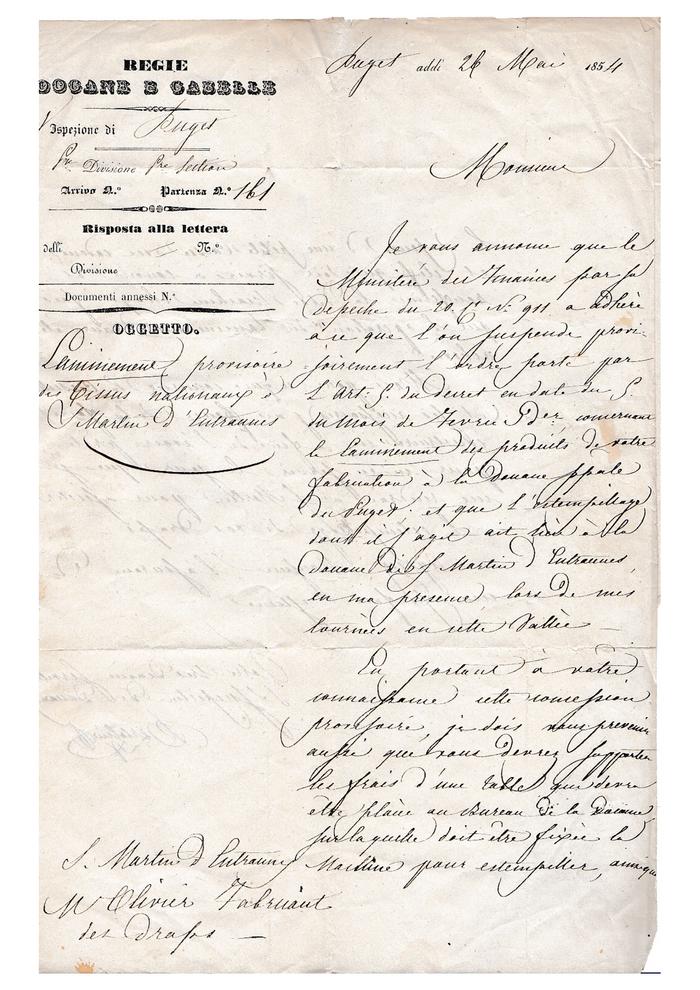 REGIE
DOGANE E GABELLE
Ispezione di Puget
Pre Divisione Pre Section
Arrivo N.º Partenza N.º 161
Risposta alla lettera
delli N.º
Divisione
Documenti annessi N.º
OGGETTO.
Laminement provisoire
des Tissus nationaux à
St Martin d'Entraunes
Puget addì 26 Mai 1854
Monsieur
Je vous annonce que le
Ministère des Finances par sa
Depeche du 20 Ct No 911 a adhéré
à ce que l'on suspende provi-
soirement l'ordre porté par
L'Art: 5. du Decret en date du 5.
du Mois de Fevrier Pder, concernant
le Laminement des produits de votre
fabrication à la Douane pple
du Puget et que l'estempillage
dont il s'agit ait lieu à la
Douane de St Martin d'Entraunes,
en ma presence, lors de mes
tournées en cette Vallée —
En portant à votre
connaissance cette concession
provisoire, je dois vous prevenir
aussi que vous devrez supporter
les frais d'une table qui devra
etre placée au Bureau de la Douane,
sur laquelle doit être fixée la
Machine pour estempiller, ainsi que
St Martin d'Entraunes
Mr Olivier Fabricant
des Draps —